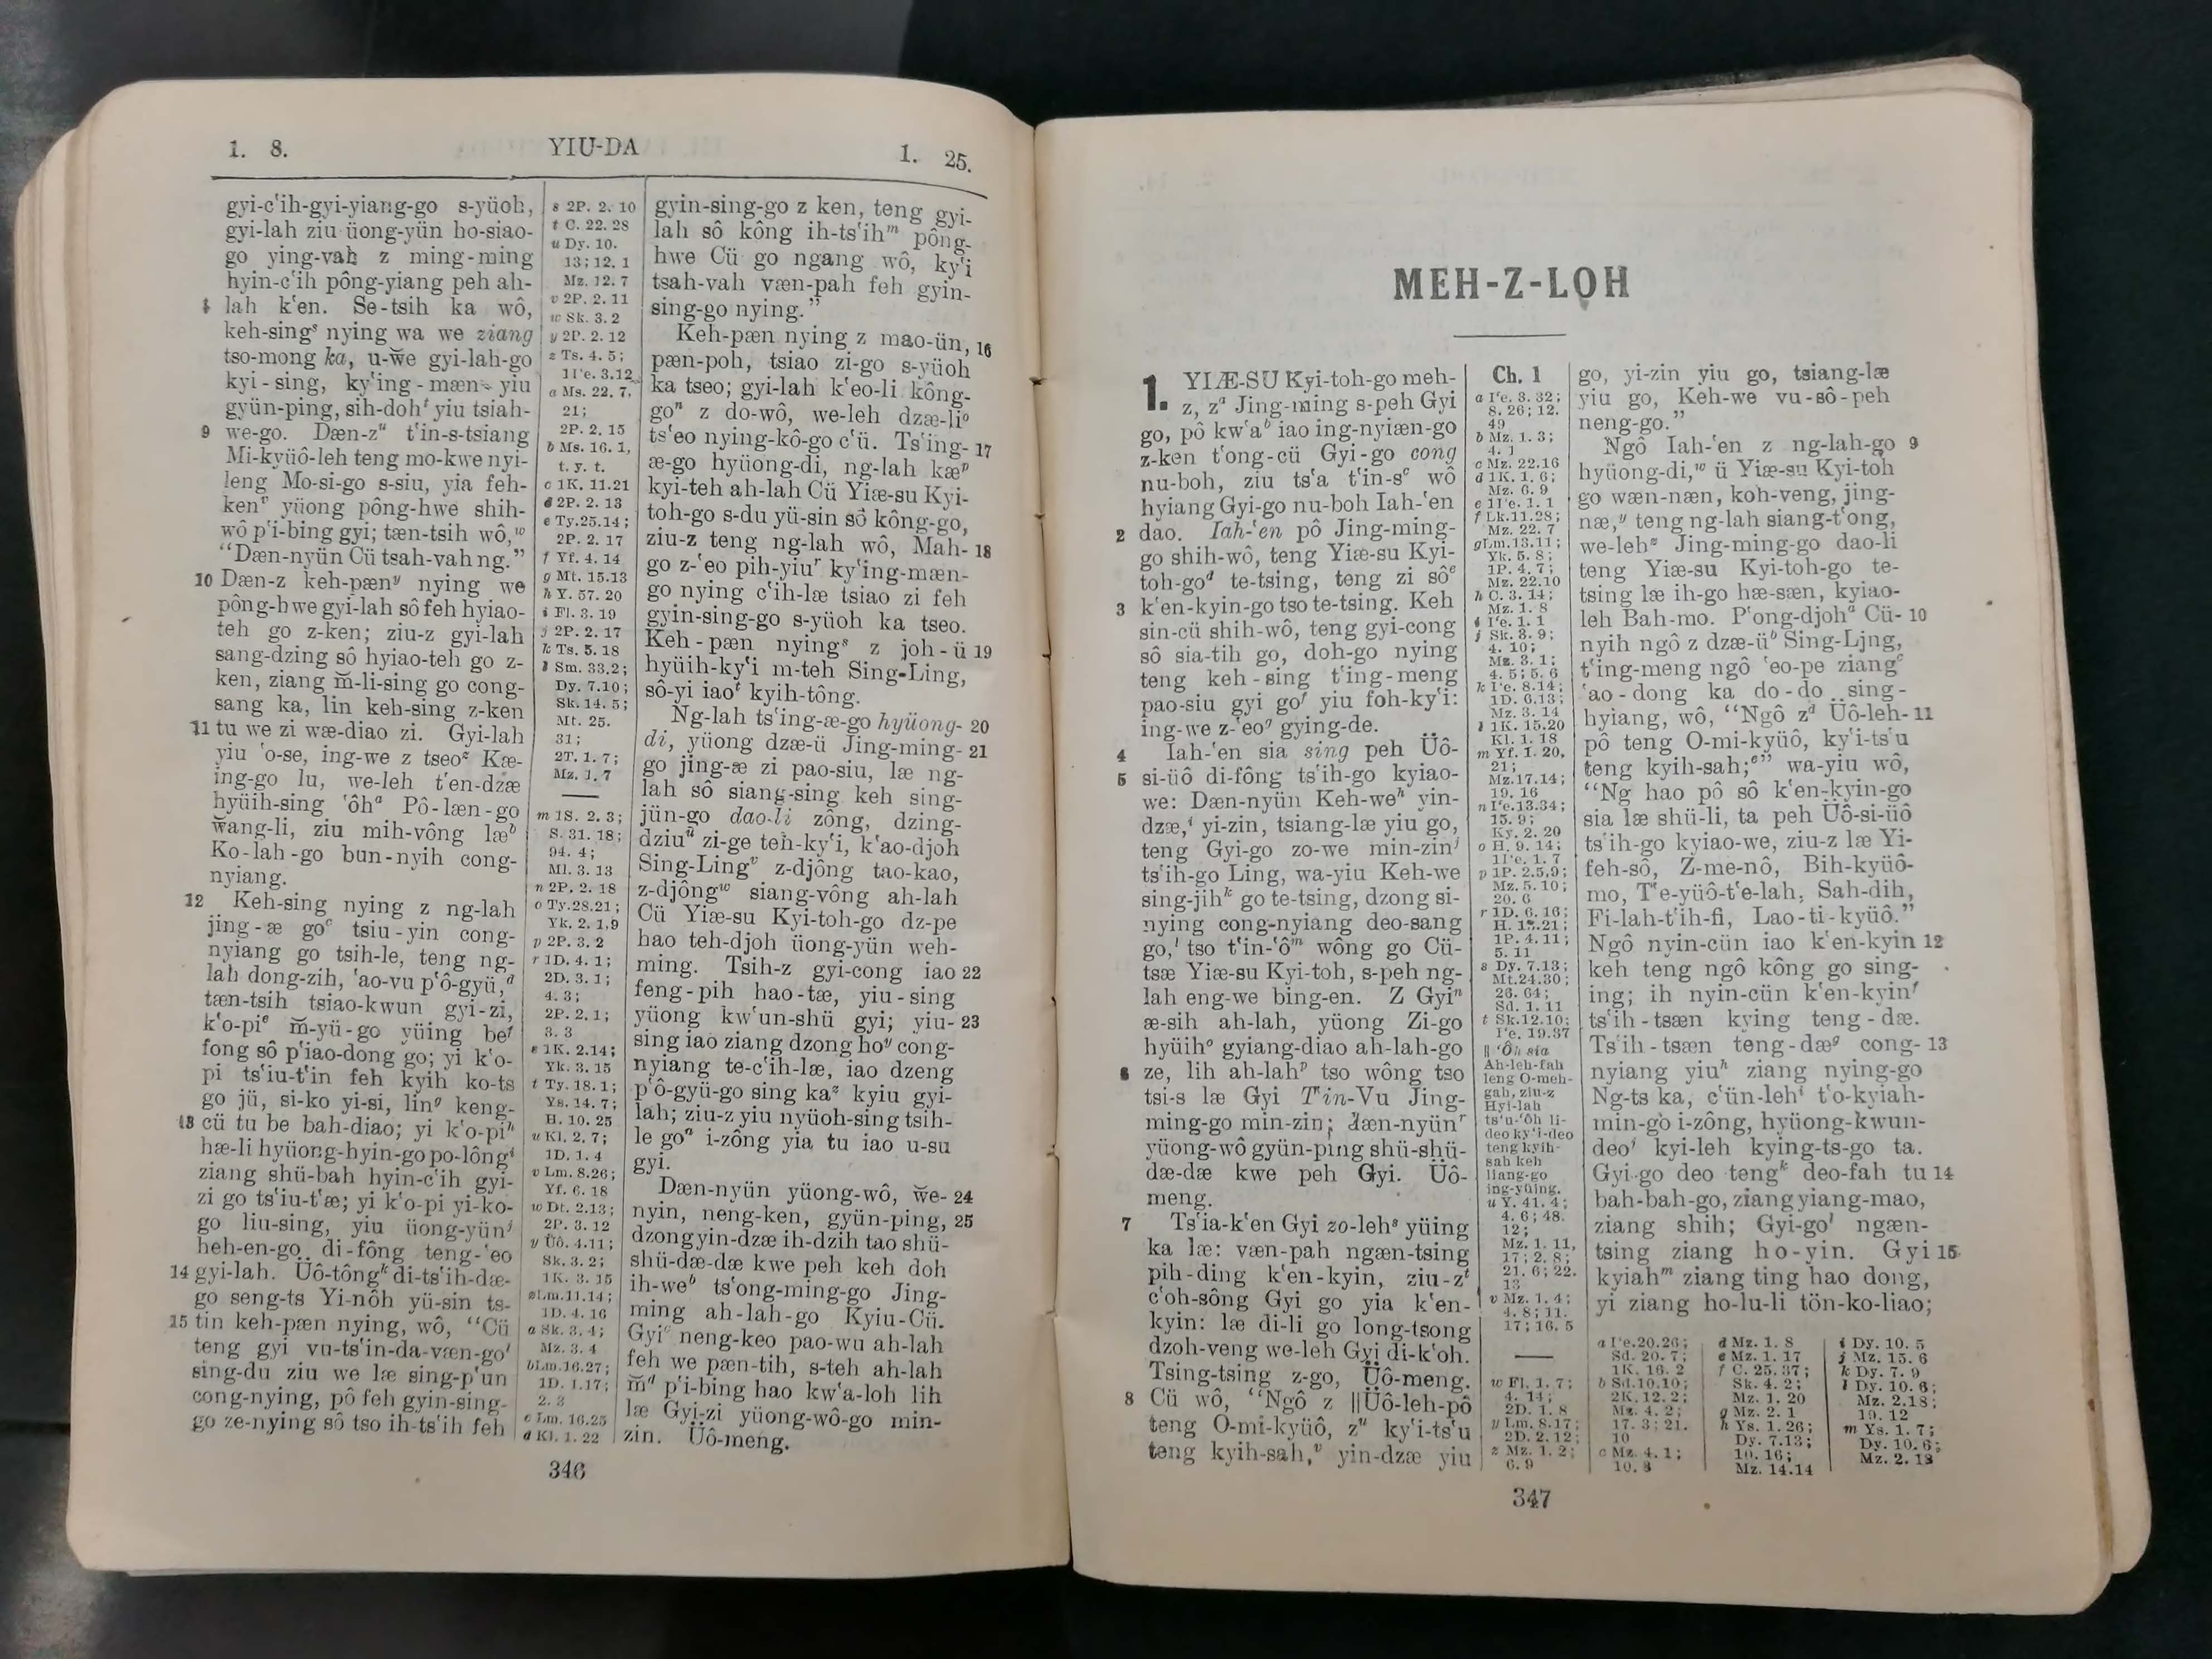 1. 8.
YIU-DA
1. 25.
gyi-c‘ih-gyi-yiang-go s-yüoh,
gyi-lah ziu üong-yün ho-siao-
go ying-vah z ming-ming
hyin-c‘ih pông-yiang peh ah-
8 lah k‘en. Se-tsih ka wô,
keh-sings nying wa we ziang
tso-mong ka, u-w̆e gyi-lah-go
kyi-sing, ky‘ing-mæn- yiu
gyün-ping, sih-doht yiu tsiah-
9 we-go. Dæn-zu t‘in-s-tsiang
Mi-kyüô-leh teng mo-kwe nyi-
leng Mo-si-go s-siu, yia feh-
kenv yüong pông-hwe shih-
wô p‘i-bing gyi; tæn-tsih wô,w
“Dæn-nyün Cü tsah-vah ng.”
10 Dæn-z keh-pæny nying we
pông-hwe gyi-lah sô feh hyiao-
teh go z-ken; ziu-z gyi-lah
sang-dzing sô hyiao-teh go z-
ken, ziang m̆-li-sing go cong-
sang ka, lin keh-sing z-ken
11 tu we zi wæ-diao zi. Gyi-lah
yiu ‘o-se, ing-we z tseoz Kæ-
ing-go lu, we-leh t‘en-dzæ
hyüih-sing ‘ôha Pô-læn-go
w̆ang-li, ziu mih-vông læb
Ko-lah-go bun-nyih cong-
nyiang.
12 Keh-sing nying z ng-lah
jing-æ goc tsiu-yin cong-
nyiang go tsih-le, teng ng-
lah dong-zih, ‘ao-vu p‘ô-gyü,d
tæn-tsih tsiao-kwun gyi-zi,
k‘o-pie m̆-yü-go yüing bef
fong sô p‘iao-dong go; yi k‘o-
pi ts‘iu-t‘in feh kyih ko-ts
go jü, si-ko yi-si, ling keng-
13 cü tu be bah-diao; yi k‘o-pih
hæ-li hyüong-hyin-go po-lôngi
ziang shü-bah hyin-c‘ih gyi-
zi go ts‘iu-t‘æ; yi k‘o-pi yi-ko-
go liu-sing, yiu üong-yünj
heh-en-go di-fông teng-‘eo
14 gyi-lah. Üô-tôngk di-ts‘ih-dæ-
go seng-ts Yi-nôh yü-sin ts-
15 tin keh-pæn nying, wô, “Cü
teng gyi vu-ts‘in-da-væn-gol
sing-du ziu we læ sing-p‘un
cong-nying, pô feh gyin-sing-
go ze-nying sô tso ih-ts‘ih feh
s 2P. 2. 10
t C. 22. 28
u Dy. 10.
13; 12. 1
Mz. 12. 7
v 2P. 2. 11
w Sk. 3. 2
y 2P. 2. 12
z Ts. 4. 5;
1I‘e. 3.12
a Ms. 22. 7,
21;
2P. 2. 15
b Ms. 16. 1,
t. y. t.
c 1K. 11.21
d 2P. 2. 13
e Ty.25.14;
2P. 2. 17
f Yf. 4. 14
g Mt. 15.13
h Y. 57. 20
i Fl. 3. 19
j 2P. 2. 17
k Ts. 5. 18
l Sm. 33.2;
Dy. 7.10;
Sk. 14. 5;
Mt. 25.
31;
2T. 1. 7;
Mz. 1. 7
m 1S. 2. 3;
S. 31. 18;
94. 4;
Ml. 3. 13
n 2P. 2. 18
o Ty.28.21;
Yk. 2. 1,9
p 2P. 3. 2
r 1D. 4. 1;
2D. 3. 1;
4. 3;
2P. 2. 1;
3. 3
s 1K. 2.14;
Yk. 3. 15
t Ty. 18. 1;
Ys. 14. 7;
H. 10. 25
u Kl. 2. 7;
1D. 1. 4
v Lm. 8.26;
Yf. 6. 18
w Dt. 2.13;
2P. 3. 12
y Üô. 4.11;
Sk. 3. 2;
1K. 3. 15
z Lm.11.14;
1D. 4. 16
a Sk. 3. 4;
Mz. 3. 4
b Lm.16.27;
1D. 1.17;
2. 3
c Lm. 16.25
d Kl. 1. 22
gyin-sing-go z ken, teng gyi-
lah sô kông ih-ts‘ihm pông-
hwe Cü go ngang wô, ky‘i
tsah-vah væn-pah feh gyin-
sing-go nying.”
Keh-pæn nying z mao-ün, 16
pæn-poh, tsiao zi-go s-yüoh
ka tseo; gyi-lah k‘eo-li kông-
gon z do-wô, we-leh dzæ-lio
ts‘eo nying-kô-go c‘ü. Ts‘ing- 17
æ-go hyüong-di, ng-lah kæp
kyi-teh ah-lah Cü Yiæ-su Kyi-
toh-go s-du yü-sin sô kông-go,
ziu-z teng ng-lah wô, Mah- 18
go z-‘eo pih-yiur ky‘ing-mæn-
go nying c‘ih-læ tsiao zi feh
gyin-sing-go s-yüoh ka tseo.
Keh-pæn nyings z joh-ü 19
hyüih-ky‘i m-teh Sing-Ling,
sô-yi iaot kyih-tông.
Ng-lah ts‘ing-æ-go hyüong- 20
di, yüong dzæ-ü Jing-ming- 21
go jing-æ zi pao-siu, læ ng-
lah sô siang-sing keh sing-
jün-go dao-li zông, dzing-
dziuu zi-ge teh-ky‘i, k‘ao-djoh
Sing-Lingv z-djông tao-kao,
z-djôngw siang-vông ah-lah
Cü Yiæ-su Kyi-toh-go dz-pe
hao teh-djoh üong-yün weh-
ming. Tsih-z gyi-cong iao 22
feng-pih hao-tæ, yiu-sing
yüong kw‘un-shü gyi; yiu- 23
sing iao ziang dzong hoy cong-
nyiang te-c‘ih-læ, iao dzeng
p‘ô-gyü-go sing kaz kyiu gyi-
lah; ziu-z yiu nyüoh-sing tsih-
le goa i-zông yia tu iao u-su
gyi.
Dæn-nyün yüong-wô, w̆e- 24
nyin, neng-ken, gyün-ping, 25
dzong yin-dzæ ih-dzih tao shü-
shü-dæ-dæ kwe peh keh doh
ih-web ts‘ong-ming-go Jing-
ming ah-lah-go Kyiu-Cü.
Gyic neng-keo pao-wu ah-lah
feh we pæn-tih, s-teh ah-lah
m̆d p‘i-bing hao kw‘a-loh lih
læ Gyi-zi yüong-wô-go min-
zin. Üô-meng.
346
MEH-Z-LOH
1. YIÆ-SU Kyi-toh-go meh-
z, za Jing-ming s-peh Gyi
go, pô kw‘ab iao ing-nyiæn-go
z-ken t‘ong-cü Gyi-go cong
nu-boh, ziu ts‘a t‘in-sc wô
hyiang Gyi-go nu-boh Iah-‘en
2 dao. Iah-‘en pô Jing-ming-
go shih-wô, teng Yiæ-su Kyi-
toh-god te-tsing, teng zi sôe
3 k‘en-kyin-go tso te-tsing. Keh
sin-cü shih-wô, teng gyi-cong
sô sia-tih go, doh-go nying
teng keh-sing t‘ing-meng
pao-siu gyi gof yiu foh-ky‘i:
ing-we z-‘eog gying-de.
4 Iah-‘en sia sing peh Üô-
5 si-üô di-fông ts‘ih-go kyiao-
we: Dæn-nyün Keh-weh yin-
dzæ,i yi-zin, tsiang-læ yiu go,
teng Gyi-go zo-we min-zinj
ts‘ih-go Ling, wa-yiu Keh-we
sing-jihk go te-tsing, dzong si-
nying cong-nyiang deo-sang
go,l tso t‘in-‘ôm wông go Cü-
tsæ Yiæ-su Kyi-toh, s-peh ng-
lah eng-we bing-en. Z Gyin
æ-sih ah-lah, yüong Zi-go
hyüiho gyiang-diao ah-lah-go
6 ze, lih ah-lahp tso wông tso
tsi-s læ Gyi T‘in-Vu Jing-
ming-go min-zin; dæn-nyünr
yüong-wô gyün-ping shü-shü-
dæ-dæ kwe peh Gyi. Üô-
meng.
7 Ts‘ia-k‘en Gyi zo-lehs yüing
ka læ: væn-pah ngæn-tsing
pih-ding k‘en-kyin, ziu-zt
c‘oh-sông Gyi go yia k‘en-
kyin: læ di-li go long-tsong
dzoh-veng we-leh Gyi di-k‘oh.
Tsing-tsing z-go, Üô-meng.
8 Cü wô, “Ngô z ||Üô-leh-pô
teng O-mi-kyüô, zu ky‘i-ts‘u
teng kyih-sah,v yin-dzæ yiu
Ch. 1
a I‘e. 3. 32;
8. 26; 12.
49
b Mz. 1. 3;
4. 1
c Mz. 22.16
d 1K. 1. 6;
Mz. 6. 9
e 1I‘e. 1. 1
f Lk.11.28;
Mz. 22. 7
g Lm.13.11;
Yk. 5. 8;
1P. 4. 7;
Mz. 22.10
h C. 3. 14;
Mz. 1. 8
i I‘e. 1. 1
j Sk. 3. 9;
4. 10;
Mz. 3. 1;
4. 5; 5. 6
k I‘e. 8.14;
1D. 6.13;
Mz. 3. 14
l 1K. 15.20
Kl. 1. 18
m Yf. 1. 20,
21;
Mz.17.14;
19. 16
n I‘e.13.34;
15. 9;
Ky. 2. 20
o H. 9. 14;
1I‘e. 1. 7
p 1P. 2.5,9;
Mz. 5. 10;
20. 6
r 1D. 6. 16;
H. 13.21;
1P. 4. 11;
5. 11
s Dy. 7.13;
Mt.24.30;
26. 64;
Sd. 1. 11
t Sk.12.10;
I‘e. 19.37
|| ‘Ôh sia
Ah-leh-fah
leng O-meh-
gah, ziu-z
Hyi-lah
ts‘u-‘ôh li-
deo ky‘i-deo
teng kyih-
sah keh
liang-go
ing-yüing.
u Y. 41. 4;
4. 6; 48.
12;
Mz. 1. 11,
17; 2. 8;
21. 6; 22.
13
v Mz. 1. 4;
4. 8; 11.
17; 16. 5
w Fl. 1. 7;
4. 14;
2D. 1. 8
y Lm. 8.17;
2D. 2. 12;
z Mz. 1. 2;
6. 9
go, yi-zin yiu go, tsiang-læ
yiu go, Keh-we vu-sô-peh
neng-go.”
Ngô Iah-‘en z ng-lah-go 9
hyüong-di,w ü Yiæ-su Kyi-toh
go wæn-næn, koh-veng, jing-
næ,y teng ng-lah siang-t‘ong,
we-lehz Jing-ming-go dao-li
teng Yiæ-su Kyi-toh-go te-
tsing læ ih-go hæ-sæn, kyiao-
leh Bah-mo. P‘ong-djoha Cü- 10
nyih ngô z dzæ-üb Sing-Ling,
t‘ing-meng ngô ‘eo-pe ziangc
‘ao-dong ka do-do sing-
hyiang, wô, “Ngô zd Üô-leh- 11
pô teng O-mi-kyüô, ky‘i-ts‘u
teng kyih-sah;e” wa-yiu wô,
“Ng hao pô sô k‘en-kyin-go
sia læ shü-li, ta peh Üô-si-üô
ts‘ih-go kyiao-we, ziu-z læ Yi-
feh-sô, Z-me-nô, Bih-kyüô-
mo, T‘e-yüô-t‘e-lah, Sah-dih,
Fi-lah-t‘ih-fi, Lao-ti-kyüô.”
Ngô nyin-cün iao k‘en-kyin 12
keh teng ngô kông go sing-
ing; ih nyin-cün k‘en-kyinf
ts‘ih-tsæn kying teng-dæ.
Ts‘ih-tsæn teng-dæg cong- 13
nyiang yiuh ziang nying-go
Ng-ts ka, c‘ün-lehi t‘o-kyiah-
min-go i-zông, hyüong-kwun-
deoj kyi-leh kying-ts-go ta.
Gyi-go deo tengk deo-fah tu 14
bah-bah-go, ziang yiang-mao,
ziang shih; Gyi-gol ngæn-
tsing ziang ho-yin. Gyi 15
kyiahm ziang ting hao dong,
yi ziang ho-lu-li tön-ko-liao;
a I‘e.20.26;
Sd. 20. 7;
1K. 16. 2
b Sd.10.10;
2K. 12. 2;
Mz. 4. 2;
17. 3; 21.
10
c Mz. 4. 1;
10. 8
d Mz. 1. 8
e Mz. 1. 17
f C. 25. 37;
Sk. 4. 2;
Mz. 1. 20
g Mz. 2. 1
h Ys. 1. 26;
Dy. 7.13;
10. 16;
Mz. 14.14
i Dy. 10. 5
j Mz. 15. 6
k Dy. 7. 9
l Dy. 10. 6;
Mz. 2.18;
19. 12
m Ys. 1. 7;
Dy. 10. 6;
Mz. 2. 18
347